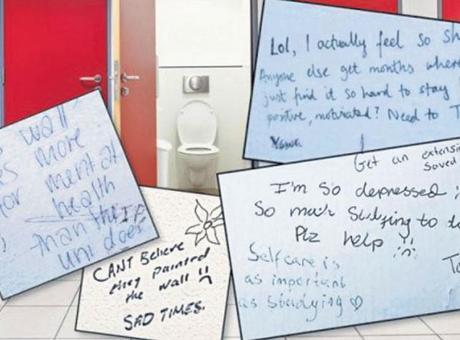 Lol, I actually feel so
Anyone else get months where
just find it so hard to stay
positive, motivated? Need to
wall
more
for mental
health
than the
uni does
CANT BELIEVE
they painted
the wall
SAD TIMES.
Get an extension
saved
I'm so depressed
So much studying to
Plz help
Self care is
as important
as studying ♡